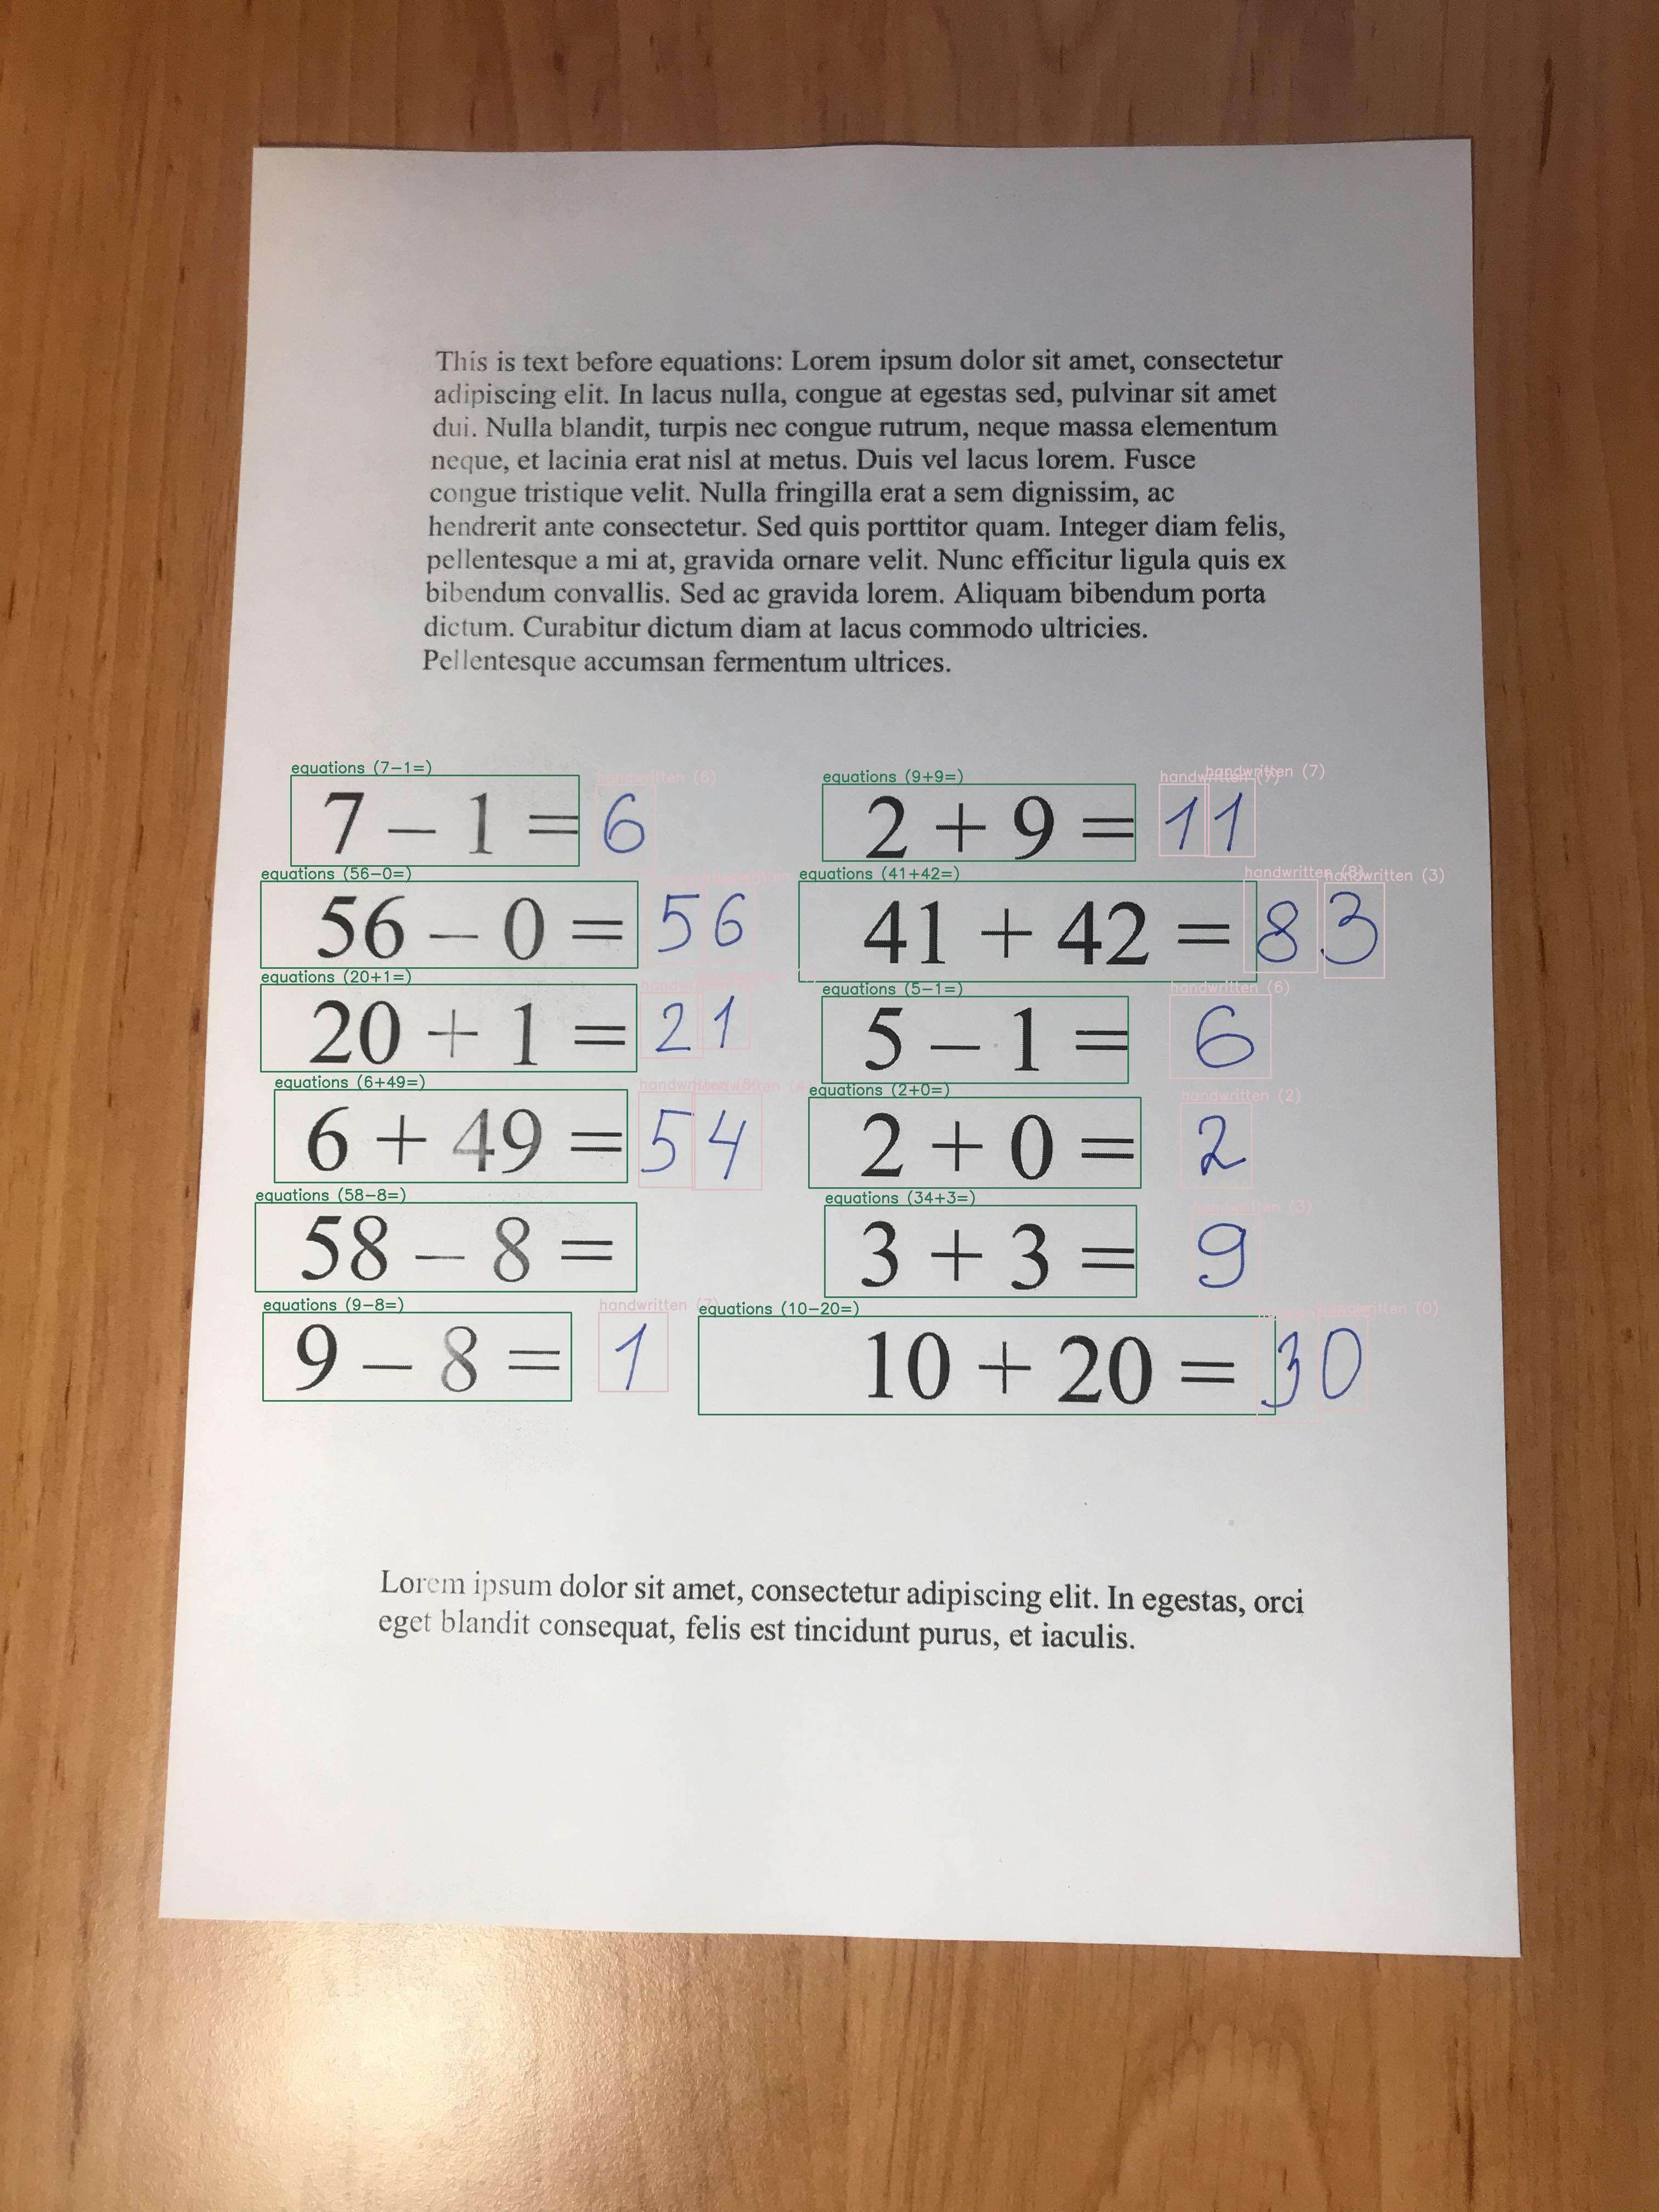 This is text before equations: Lorem ipsum dolor sit amet, consectetur
adipiscing elit. In lacus nulla, congue at egestas sed, pulvinar sit amet
dui. Nulla blandit, turpis nec congue rutrum, neque massa elementum
neque, et lacinia erat nisl at metus. Duis vel lacus lorem. Fusce
congue tristique velit. Nulla fringilla erat a sem dignissim, ac
hendrerit ante consectetur. Sed quis porttitor quam. Integer diam felis,
pellentesque a mi at, gravida ornare velit. Nunc efficitur ligula quis ex
bibendum convallis. Sed ac gravida lorem. Aliquam bibendum porta
dictum. Curabitur dictum diam at lacus commodo ultricies.
Pellentesque accumsan fermentum ultrices.
equations (7-1=) handwritten (6)
7 – 1 = 6
equations (56-0=)
56 – 0 = 56
equations (20+1=)
20 + 1 = 21
equations (6+49=) handwritten
6 + 49 = 54
equations (58-8=)
58 – 8 =
equations (9-8=) handwritten (7)
9 – 8 = 1
equations (9+9=) handwritten (7) handwritten (7)
2 + 9 = 11
equations (41+42=) handwritten (8) handwritten (3)
41 + 42 = 83
equations (5-1=) handwritten (6)
5 – 1 = 6
equations (2+0=) handwritten (2)
2 + 0 = 2
equations (34+3=) handwritten (3)
3 + 3 = 9
equations (10-20=) handwritten (0)
10 + 20 = 30
Lorem ipsum dolor sit amet, consectetur adipiscing elit. In egestas, orci
eget blandit consequat, felis est tincidunt purus, et iaculis.